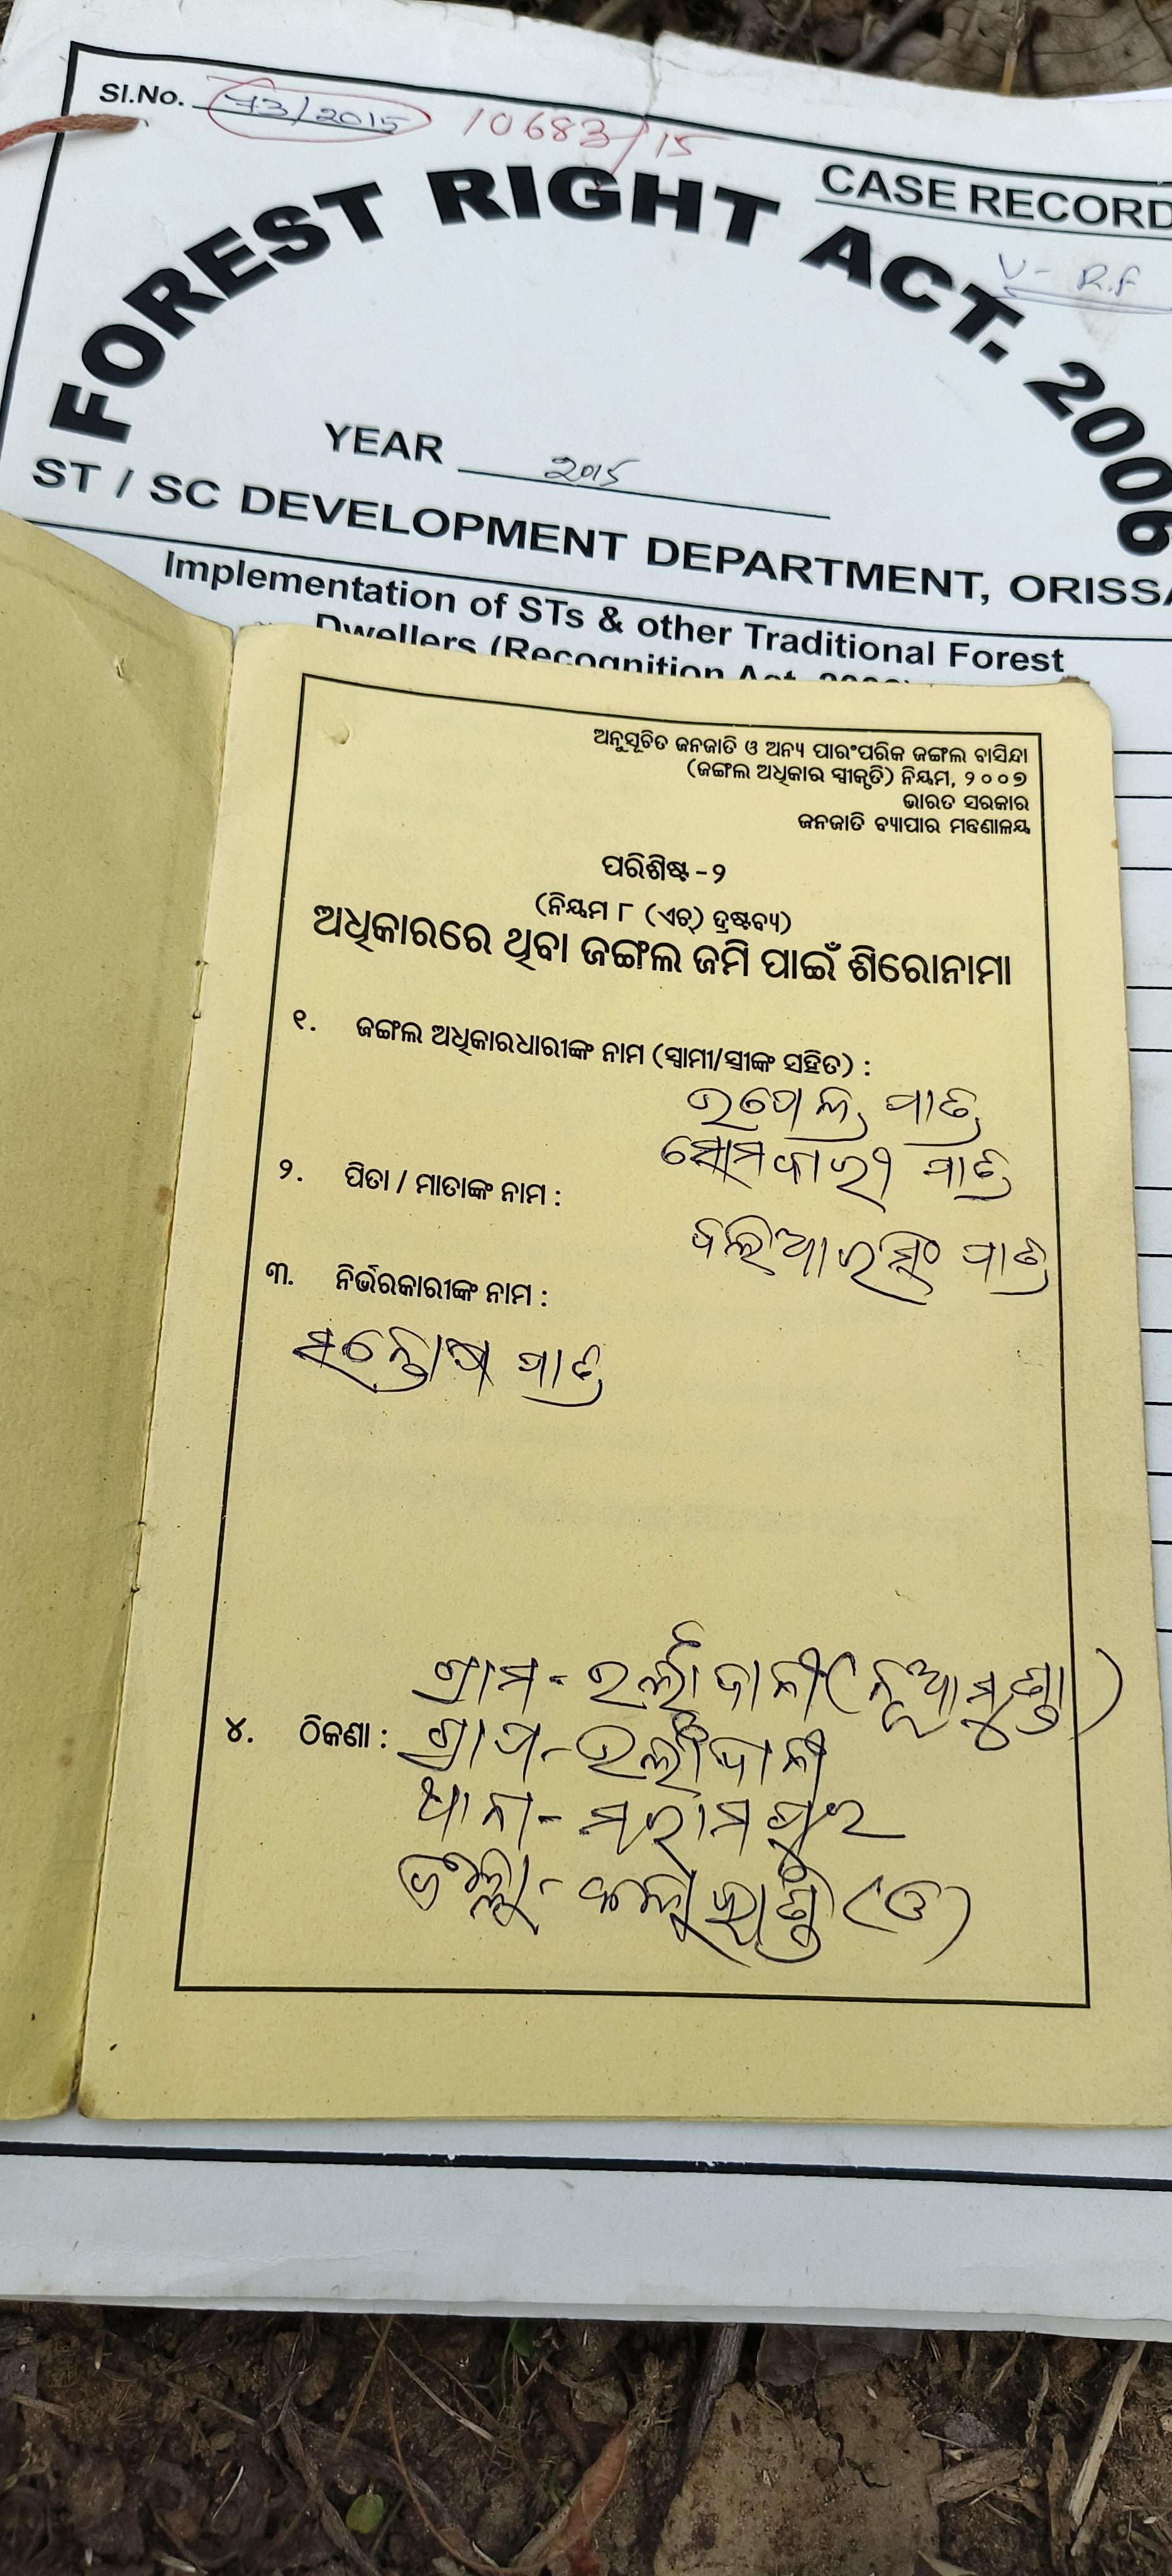 Sl.No. 73/2015 10683/15
CASE RECORD
V- R.F
FOREST RIGHT ACT. 2006
YEAR 2015
ST / SC DEVELOPMENT DEPARTMENT, ORISSA
Implementation of STs & other Traditional Forest
Dwellers (Recognition Act, 2006)
ଅନୁସୂଚିତ ଜନଜାତି ଓ ଅନ୍ୟ ପାରଂପରିକ ଜଙ୍ଗଲ ବାସିନ୍ଦା
(ଜଙ୍ଗଲ ଅଧିକାର ସ୍ୱୀକୃତି) ନିୟମ, ୨୦୦୭
ଭାରତ ସରକାର
ଜନଜାତି ବ୍ୟାପାର ମନ୍ତ୍ରଣାଳୟ
ପରିଶିଷ୍ଟ - ୨
(ନିୟମ ୮ (ଏଚ୍) ଦ୍ରଷ୍ଟବ୍ୟ)
ଅଧିକାରରେ ଥିବା ଜଙ୍ଗଲ ଜମି ପାଇଁ ଶିରୋନାମା
୧. ଜଙ୍ଗଲ ଅଧିକାରଧାରୀଙ୍କ ନାମ (ସ୍ୱାମୀ/ସ୍ତ୍ରୀଙ୍କ ସହିତ) :
ପାତ୍ର
ସୋମବାରୀ ପାତ୍ର
୨. ପିତା / ମାତାଙ୍କ ନାମ :
ବଲିଆରସିଂ ପାତ୍ର
୩. ନିର୍ଭରକାରୀଙ୍କ ନାମ :
ସନ୍ତୋଷ ପାତ୍ର
ଗ୍ରାମ - (ନୂଆମୁଣ୍ଡା)
୪. ଠିକଣା : ଗ୍ରାପ -
ଥାନା -
ଜିଲ୍ଲା - କଳାହାଣ୍ଡି (ଓ)